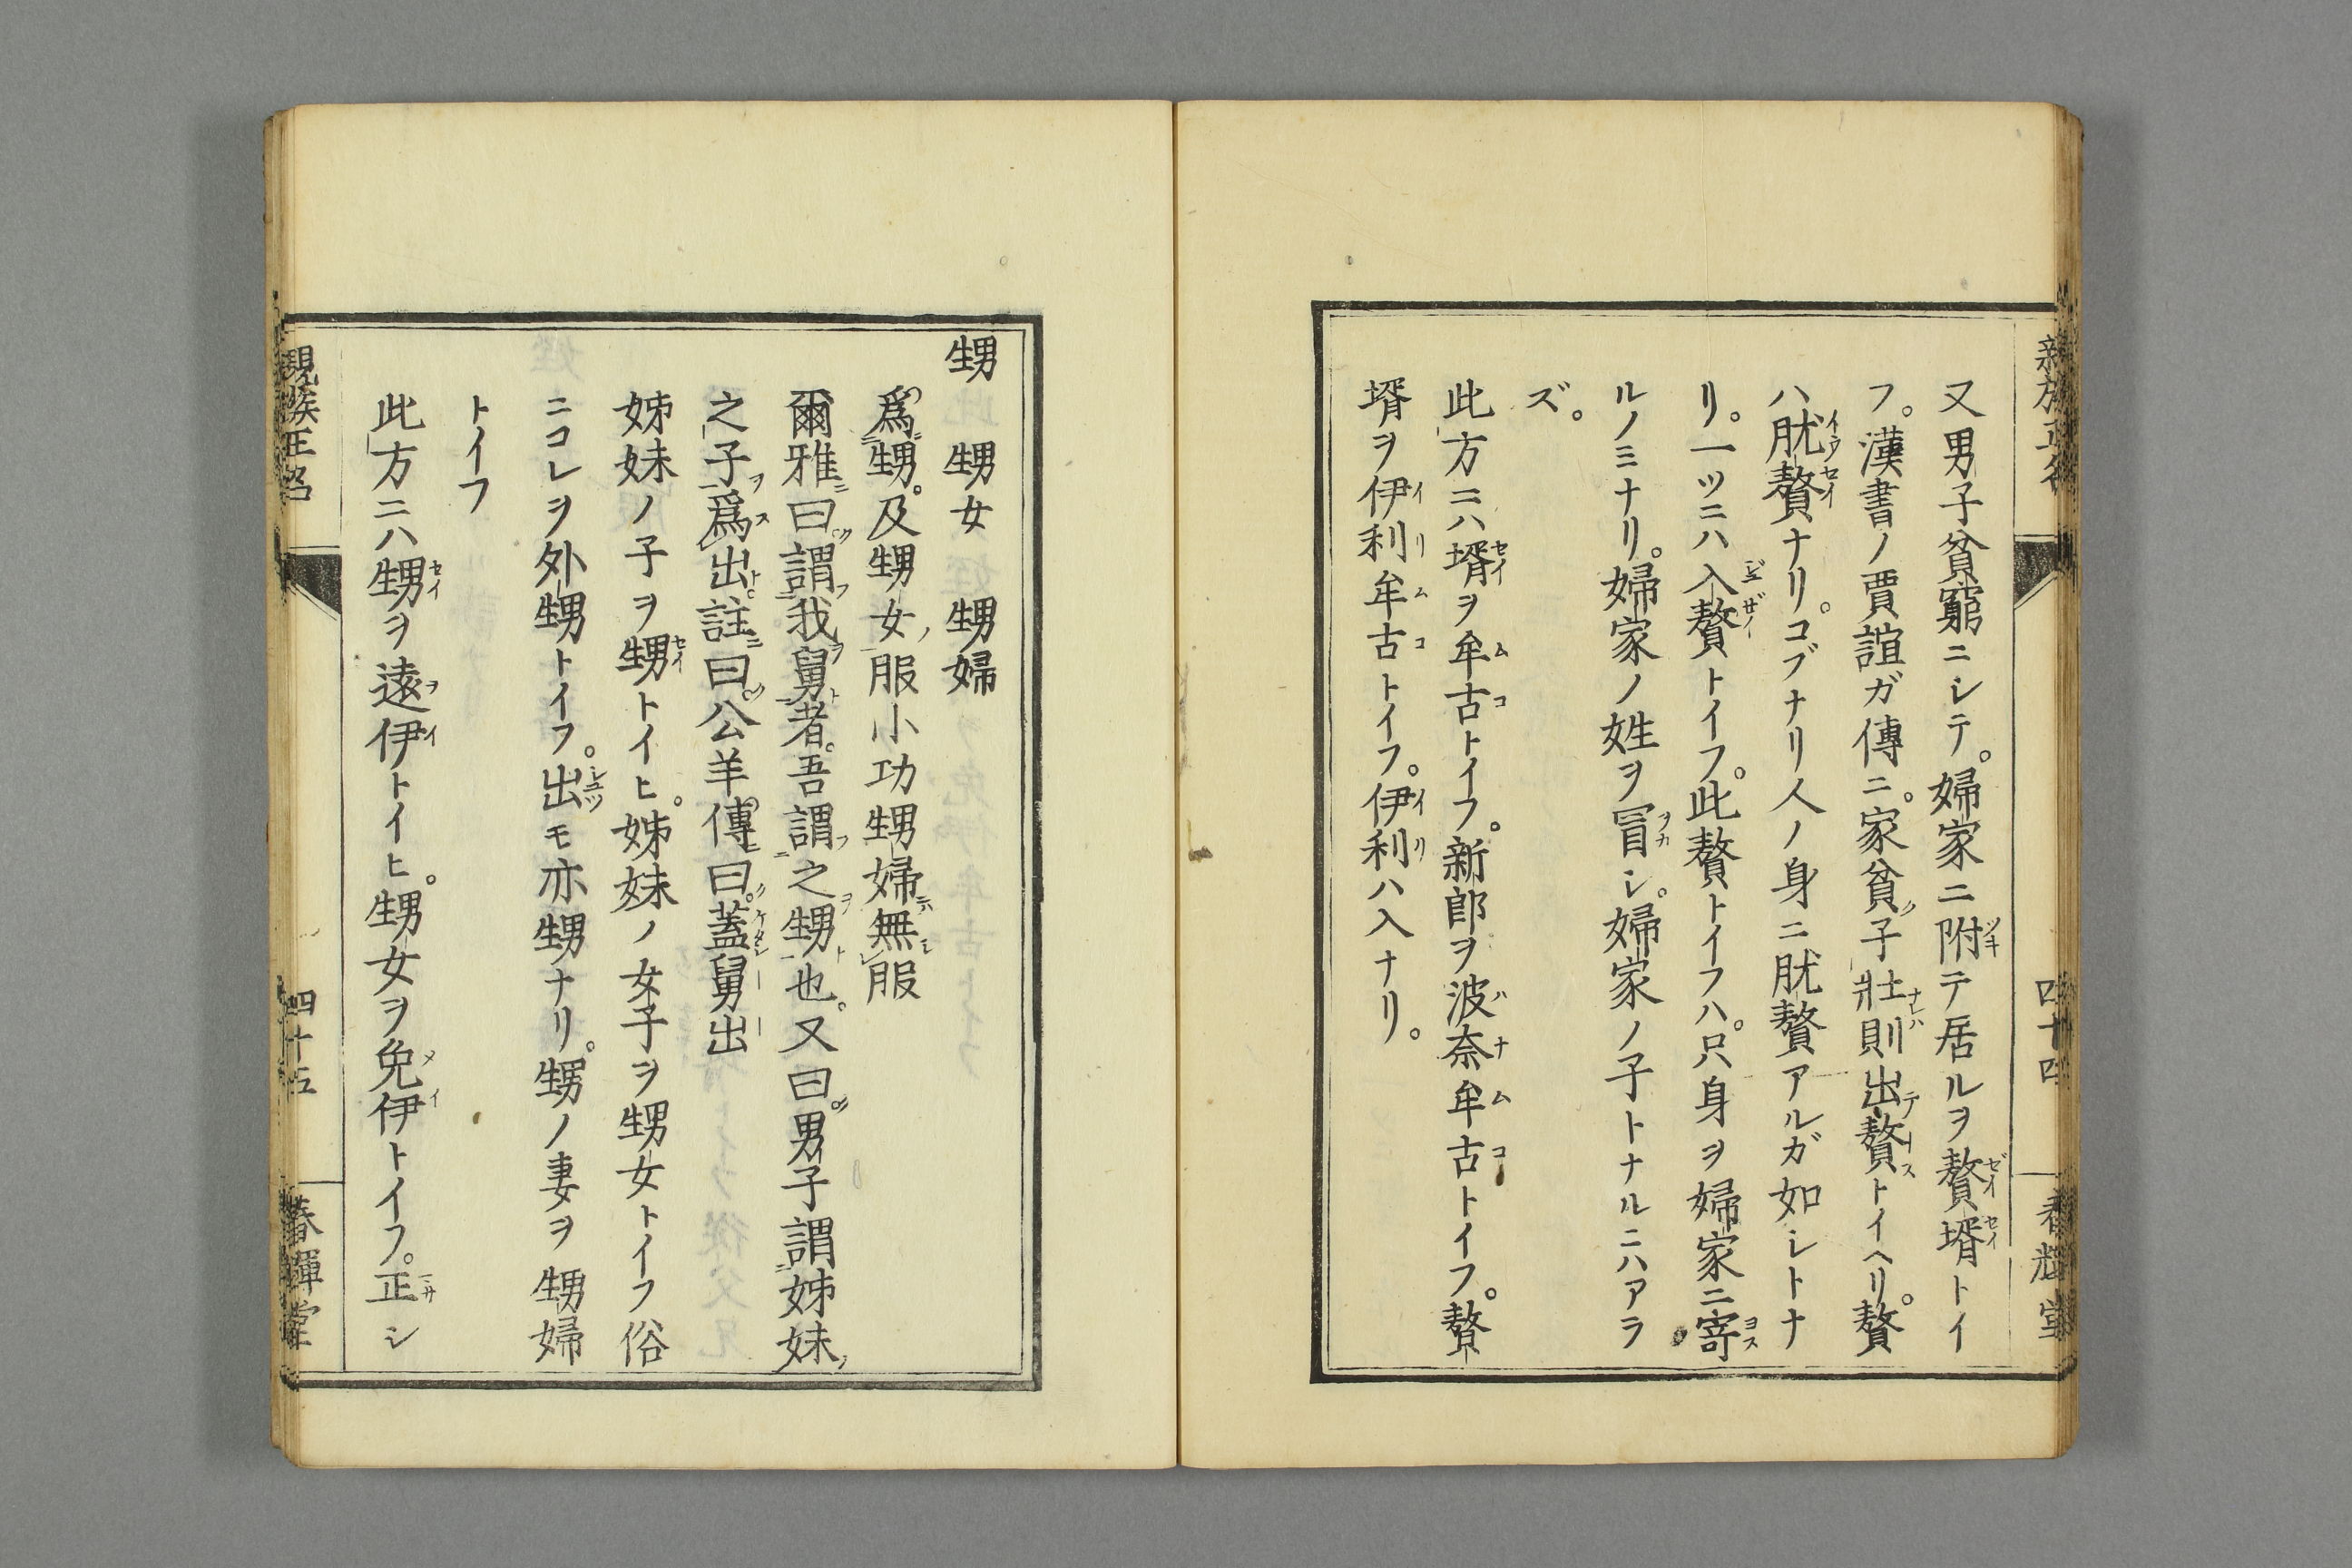 親族正名 四十四 春輝堂
又男子貧窮ニシテ。婦家ニ附テ居ルヲ贅壻トイ
フ。漢書ノ賈誼ガ傳ニ。家貧子壯則出贅トイヘリ。贅
ハ肬贅ナリ。コブナリ人ノ身ニ肬贅アルガ如シトナ
リ。一ツニハ入贅トイフ。此贅トイフハ。只身ヲ婦家ニ寄
ルノミナリ。婦家ノ姓ヲ冒シ。婦家ノ子トナルニハアラ
ズ。
此方ニハ壻ヲ牟古トイフ。新郎ヲ波奈牟古トイフ。贅
壻ヲ伊利牟古トイフ。伊利ハ入ナリ。
甥 甥女 甥婦
爲甥。及甥女服小功甥婦無服
爾雅曰。謂我舅者。吾謂之甥也。又曰。男子謂姊妹
之子爲出。註曰。公羊傳曰。蓋舅出
姊妹ノ子ヲ甥トイヒ。姊妹ノ女子ヲ甥女トイフ俗
ニコレヲ外甥トイフ。出モ亦甥ナリ。甥ノ妻ヲ甥婦
トイフ
此方ニハ甥ヲ遠伊トイヒ。甥女ヲ免伊トイフ。正シ
親族正名 四十五 春輝堂